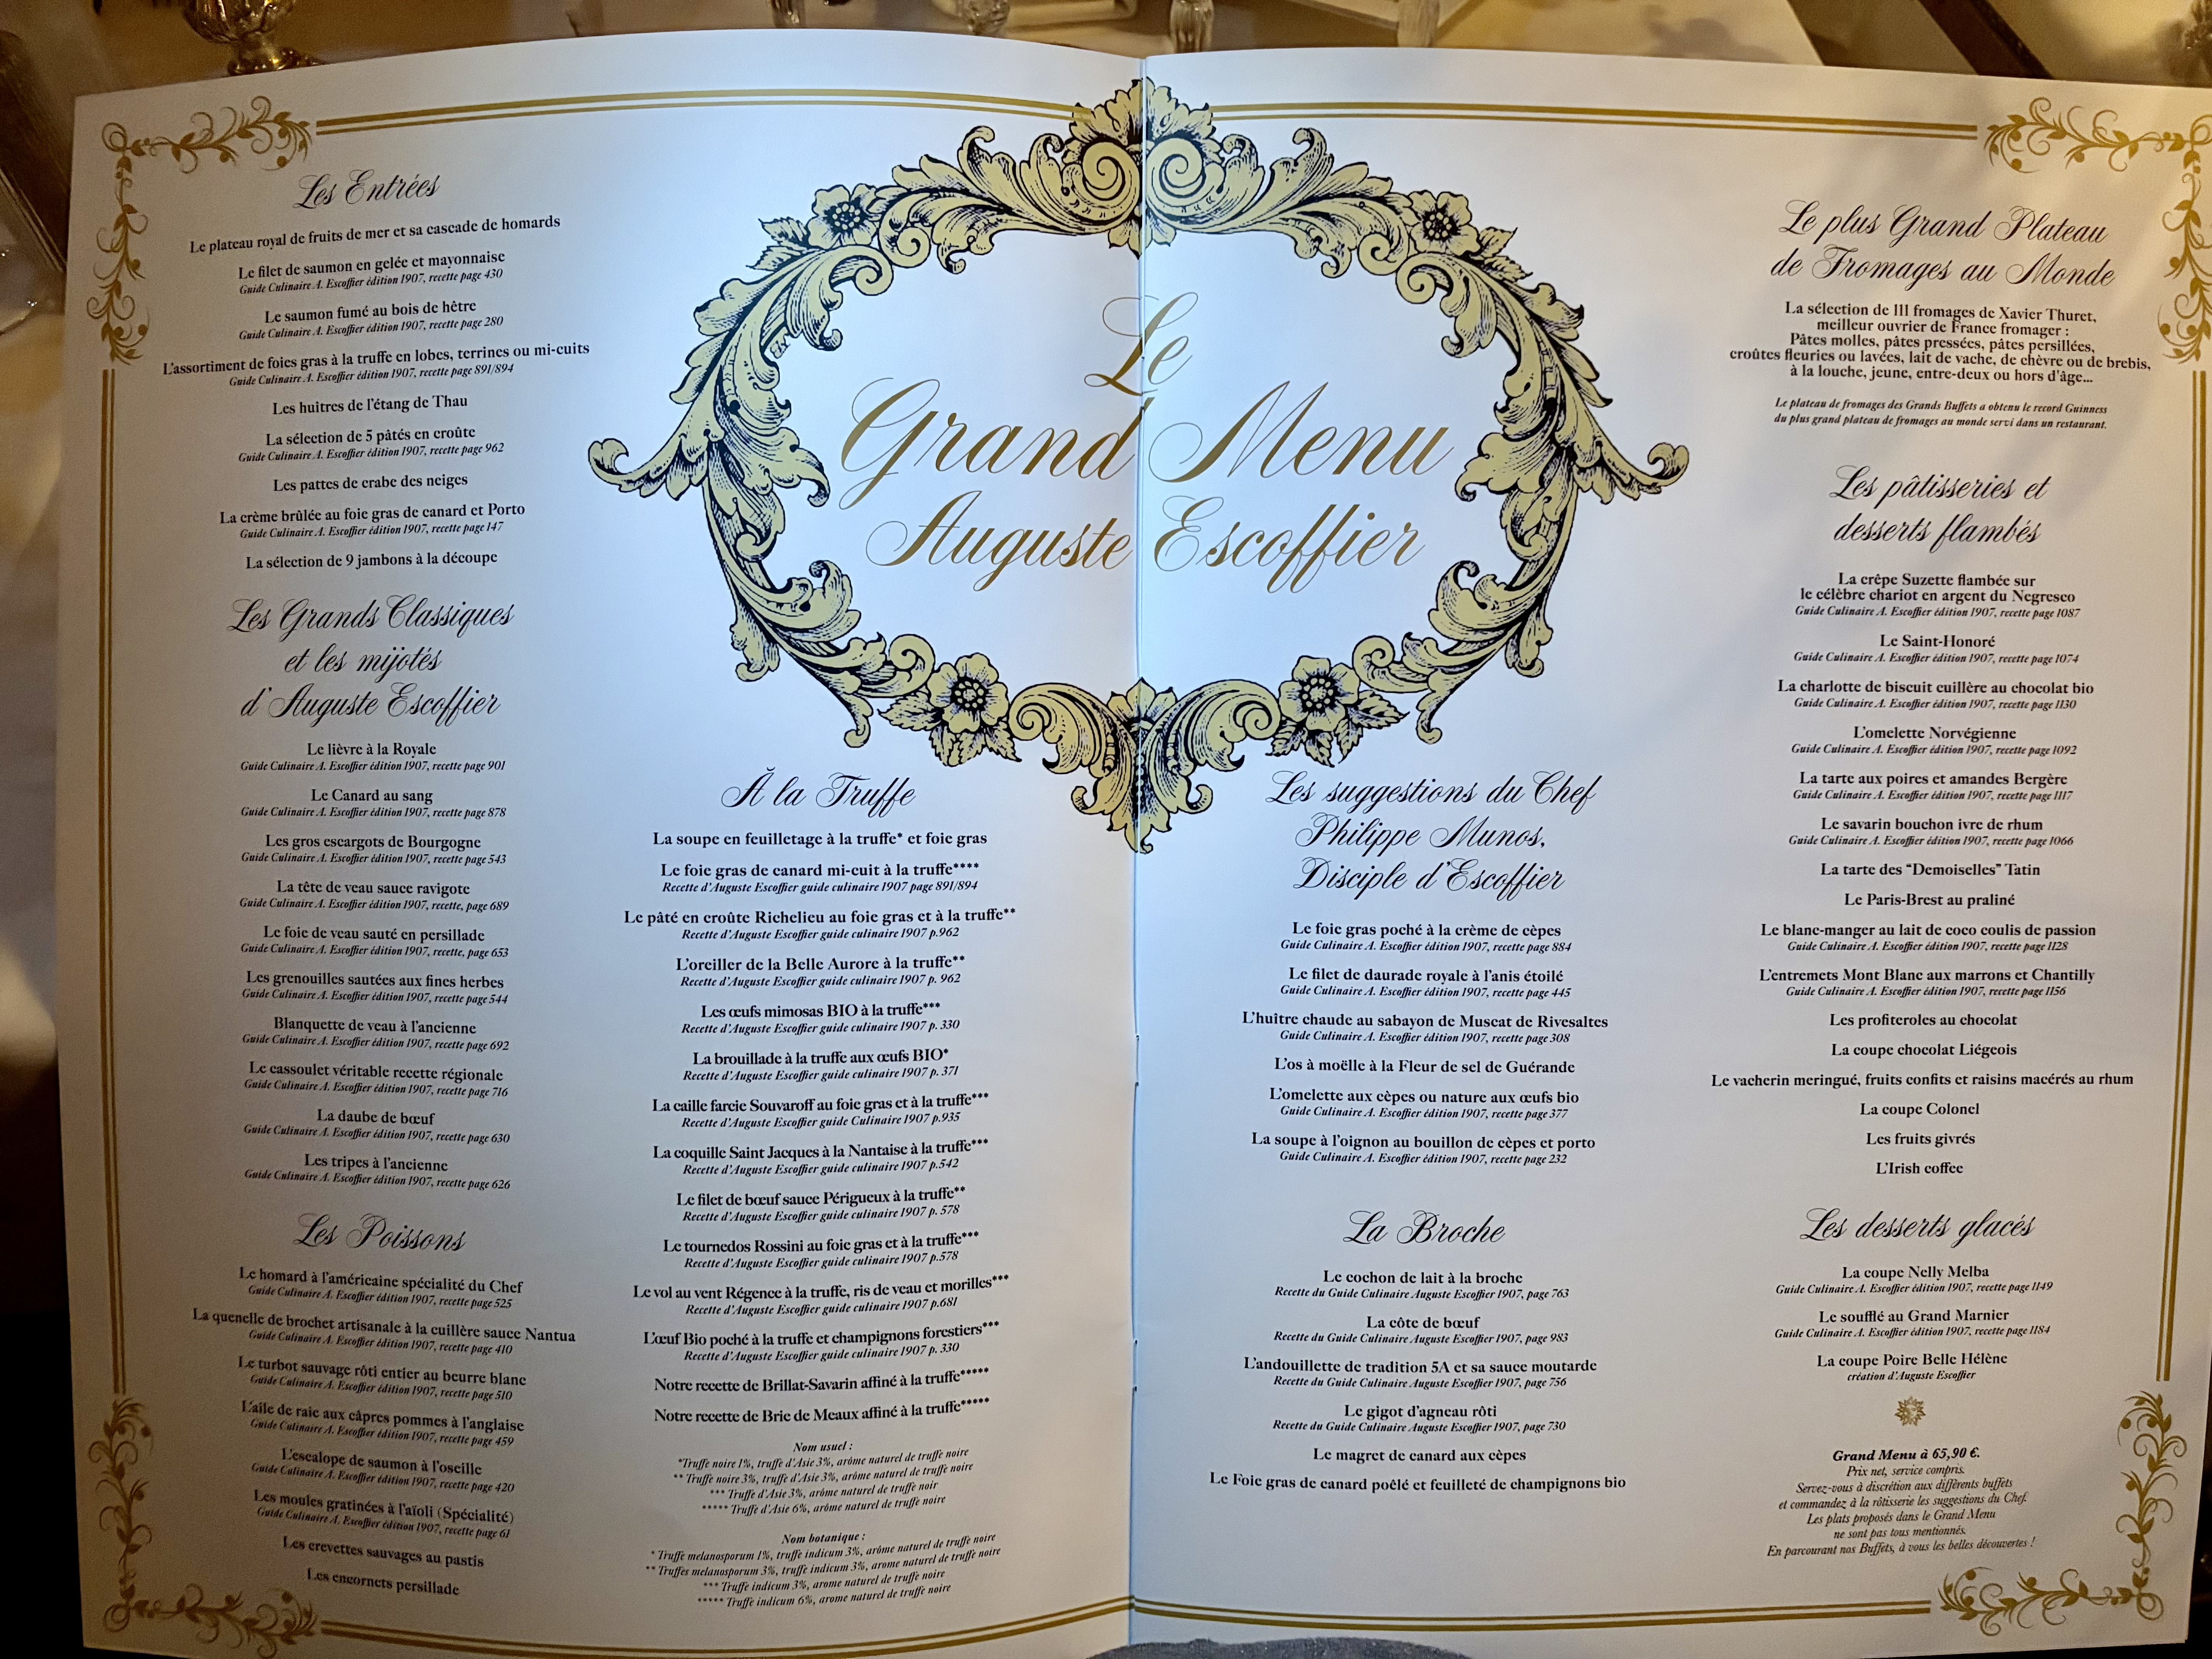 Les Entrées
Le plateau royal de fruits de mer et sa cascade de homards
Le filet de saumon en gelée et mayonnaise
Guide Culinaire A. Escoffier édition 1907, recette page 430
Le saumon fumé au bois de hêtre
Guide Culinaire A. Escoffier édition 1907, recette page 280
L'assortiment de foies gras à la truffe en lobes, terrines ou mi-cuits
Guide Culinaire A. Escoffier édition 1907, recette page 891/894
Les huîtres de l'étang de Thau
La sélection de 5 pâtés en croûte
Guide Culinaire A. Escoffier édition 1907, recette page 962
Les pattes de crabe des neiges
La crème brûlée au foie gras de canard et Porto
Guide Culinaire A. Escoffier édition 1907, recette page 147
La sélection de 9 jambons à la découpe
Les Grands Classiques
et les mijotés
d'Auguste Escoffier
Le lièvre à la Royale
Guide Culinaire A. Escoffier édition 1907, recette page 901
Le Canard au sang
Guide Culinaire A. Escoffier édition 1907, recette page 878
Les gros escargots de Bourgogne
Guide Culinaire A. Escoffier édition 1907, recette, page 543
La tête de veau sauce ravigote
Guide Culinaire A. Escoffier édition 1907, recette, page 689
Le foie de veau sauté en persillade
Guide Culinaire A. Escoffier édition 1907, recette, page 653
Les grenouilles sautées aux fines herbes
Guide Culinaire A. Escoffier édition 1907, recette page 544
Blanquette de veau à l'ancienne
Guide Culinaire A. Escoffier édition 1907, recette, page 692
Le cassoulet véritable recette régionale
Guide Culinaire A. Escoffier édition 1907, recette page 716
La daube de bœuf
Guide Culinaire A. Escoffier édition 1907, recette page 630
Les tripes à l'ancienne
Guide Culinaire A. Escoffier édition 1907, recette page 626
Les Poissons
Le homard à l'américaine spécialité du Chef
Guide Culinaire A. Escoffier édition 1907, recette page 525
La quenelle de brochet artisanale à la cuillère sauce Nantua
Guide Culinaire A. Escoffier édition 1907, recette page 410
Le turbot sauvage rôti entier au beurre blanc
Guide Culinaire A. Escoffier édition 1907, recette page 510
L'aile de raie aux câpres pommes à l'anglaise
Guide Culinaire A. Escoffier édition 1907, recette page 459
L'escalope de saumon à l'oseille
Guide Culinaire A. Escoffier édition 1907, recette page 420
Les moules gratinées à l'aïoli (Spécialité)
Guide Culinaire A. Escoffier édition 1907, recette page 61
Les crevettes sauvages au pastis
Les encornets persillade
Le
Grand Menu
Auguste Escoffier
À la Truffe
La soupe en feuilletage à la truffe* et foie gras
Le foie gras de canard mi-cuit à la truffe****
Recette d'Auguste Escoffier guide culinaire 1907 page 891/894
Le pâté en croûte Richelieu au foie gras et à la truffe**
Recette d'Auguste Escoffier guide culinaire 1907 p.962
L'oreiller de la Belle Aurore à la truffe**
Recette d'Auguste Escoffier guide culinaire 1907 p. 962
Les œufs mimosas BIO à la truffe***
Recette d'Auguste Escoffier guide culinaire 1907 p. 330
La brouillade à la truffe aux œufs BIO*
Recette d'Auguste Escoffier guide culinaire 1907 p. 371
La caille farcie Souvaroff au foie gras et à la truffe***
Recette d'Auguste Escoffier guide culinaire 1907 p.935
La coquille Saint Jacques à la Nantaise à la truffe***
Recette d'Auguste Escoffier guide culinaire 1907 p.542
Le filet de bœuf sauce Périgueux à la truffe**
Recette d'Auguste Escoffier guide culinaire 1907 p. 578
Le tournedos Rossini au foie gras et à la truffe***
Recette d'Auguste Escoffier guide culinaire 1907 p.578
Le vol au vent Régence à la truffe, ris de veau et morilles***
Recette d'Auguste Escoffier guide culinaire 1907 p.681
L'œuf Bio poché à la truffe et champignons forestiers***
Recette d'Auguste Escoffier guide culinaire 1907 p. 330
Notre recette de Brillat-Savarin affiné à la truffe*****
Notre recette de Brie de Meaux affiné à la truffe*****
Nom usuel :
*Truffe noire 1%, truffe d'Asie 3%, arôme naturel de truffe noire
** Truffe noire 3%, truffe d'Asie 3%, arôme naturel de truffe noire
*** Truffe d'Asie 3%, arôme naturel de truffe noir
***** Truffe d'Asie 6%, arôme naturel de truffe noire
Nom botanique :
* Truffe melanosporum 1%, truffe indicum 3%, arôme naturel de truffe noire
** Truffes melanosporum 3%, truffe indicum 3%, arome naturel de truffe noire
*** Truffe indicum 3%, arome naturel de truffe noire
***** Truffe indicum 6%, arome naturel de truffe noire
Les suggestions du Chef
Philippe Munos,
Disciple d'Escoffier
Le foie gras poché à la crème de cèpes
Guide Culinaire A. Escoffier édition 1907, recette page 884
Le filet de daurade royale à l'anis étoilé
Guide Culinaire A. Escoffier édition 1907, recette page 445
L'huître chaude au sabayon de Muscat de Rivesaltes
Guide Culinaire A. Escoffier édition 1907, recette page 308
L'os à moëlle à la Fleur de sel de Guérande
L'omelette aux cèpes ou nature aux œufs bio
Guide Culinaire A. Escoffier édition 1907, recette page 377
La soupe à l'oignon au bouillon de cèpes et porto
Guide Culinaire A. Escoffier édition 1907, recette page 232
La Broche
Le cochon de lait à la broche
Recette du Guide Culinaire Auguste Escoffier 1907, page 763
La côte de bœuf
Recette du Guide Culinaire Auguste Escoffier 1907, page 983
L'andouillette de tradition 5A et sa sauce moutarde
Recette du Guide Culinaire Auguste Escoffier 1907, page 756
Le gigot d'agneau rôti
Recette du Guide Culinaire Auguste Escoffier 1907, page 730
Le magret de canard aux cèpes
Le Foie gras de canard poêlé et feuilleté de champignons bio
Le plus Grand Plateau
de Fromages au Monde
La sélection de 111 fromages de Xavier Thuret,
meilleur ouvrier de France fromager :
Pâtes molles, pâtes pressées, pâtes persillées,
croûtes fleuries ou lavées, lait de vache, de chèvre ou de brebis,
à la louche, jeune, entre-deux ou hors d'âge...
Le plateau de fromages des Grands Buffets a obtenu le record Guinness
du plus grand plateau de fromages au monde servi dans un restaurant.
Les pâtisseries et
desserts flambés
La crêpe Suzette flambée sur
le célèbre chariot en argent du Negresco
Guide Culinaire A. Escoffier édition 1907, recette page 1087
Le Saint-Honoré
Guide Culinaire A. Escoffier édition 1907, recette page 1074
La charlotte de biscuit cuillère au chocolat bio
Guide Culinaire A. Escoffier édition 1907, recette page 1130
L'omelette Norvégienne
Guide Culinaire A. Escoffier édition 1907, recette page 1092
La tarte aux poires et amandes Bergère
Guide Culinaire A. Escoffier édition 1907, recette page 1117
Le savarin bouchon ivre de rhum
Guide Culinaire A. Escoffier édition 1907, recette page 1066
La tarte des “Demoiselles” Tatin
Le Paris-Brest au praliné
Le blanc-manger au lait de coco coulis de passion
Guide Culinaire A. Escoffier édition 1907, recette page 1128
L'entremets Mont Blanc aux marrons et Chantilly
Guide Culinaire A. Escoffier édition 1907, recette page 1156
Les profiteroles au chocolat
La coupe chocolat Liégeois
Le vacherin meringué, fruits confits et raisins macérés au rhum
La coupe Colonel
Les fruits givrés
L'Irish coffee
Les desserts glacés
La coupe Nelly Melba
Guide Culinaire A. Escoffier édition 1907, recette page 1149
Le soufflé au Grand Marnier
Guide Culinaire A. Escoffier édition 1907, recette page 1184
La coupe Poire Belle Hélène
création d'Auguste Escoffier
Grand Menu à 65,90 €.
Prix net, service compris.
Servez-vous à discrétion aux différents buffets
et commandez à la rôtisserie les suggestions du Chef.
Les plats proposés dans le Grand Menu
ne sont pas tous mentionnés.
En parcourant nos Buffets, à vous les belles découvertes !